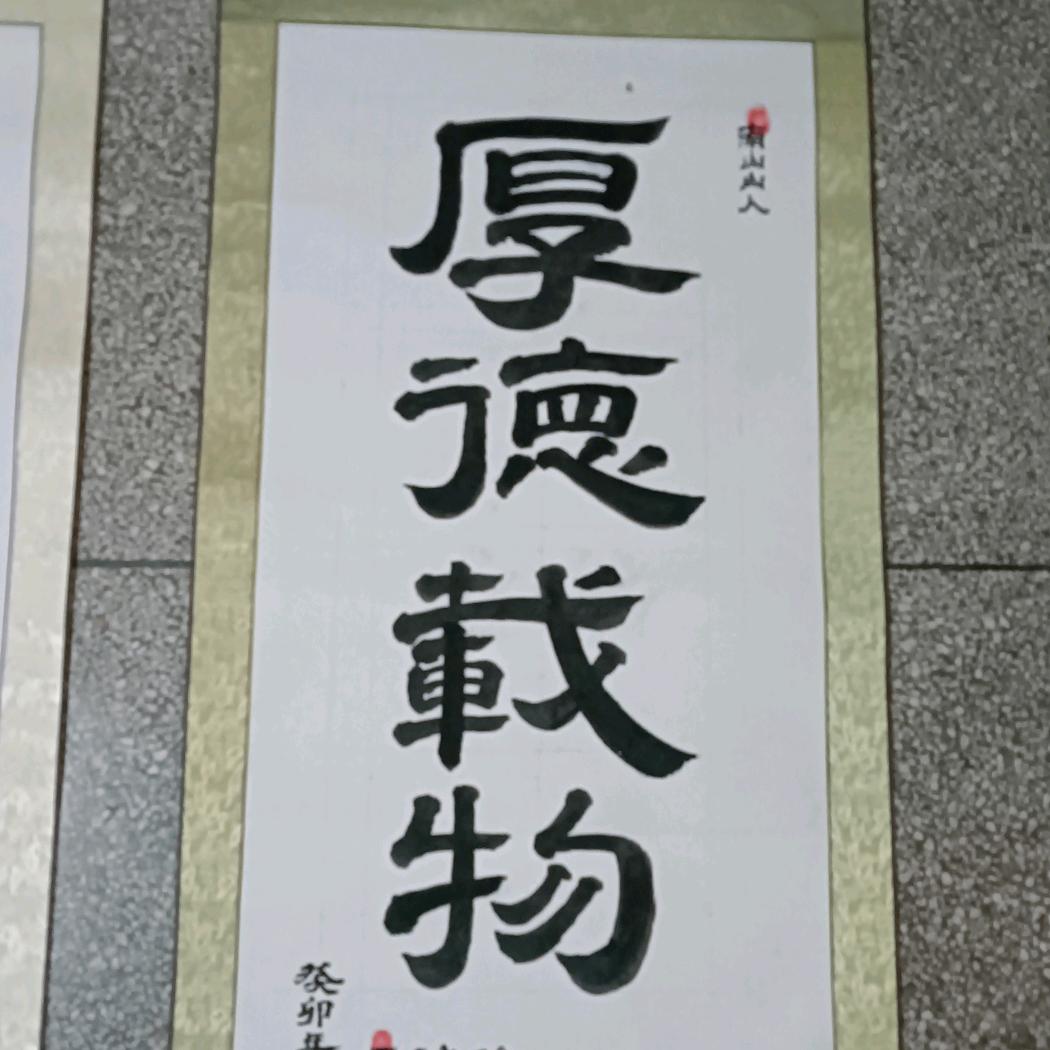 山山人
厚德載物
癸卯年